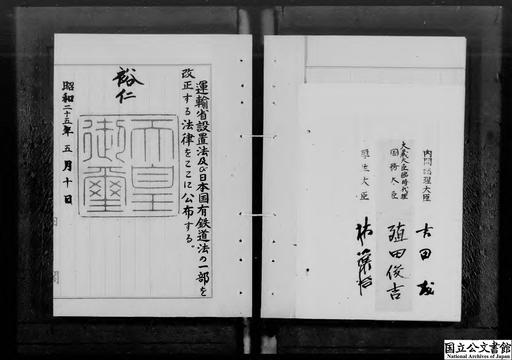 運輸省設置法及び日本国有鉄道法の一部を
改正する法律をここに公布する。
裕仁
天皇
御璽
昭和二十五年五月十日
内閣総理大臣
吉田茂
大蔵大臣臨時代理
国務大臣
殖田俊吉
厚生大臣
林譲治
国立公文書館
National Archives of Japan